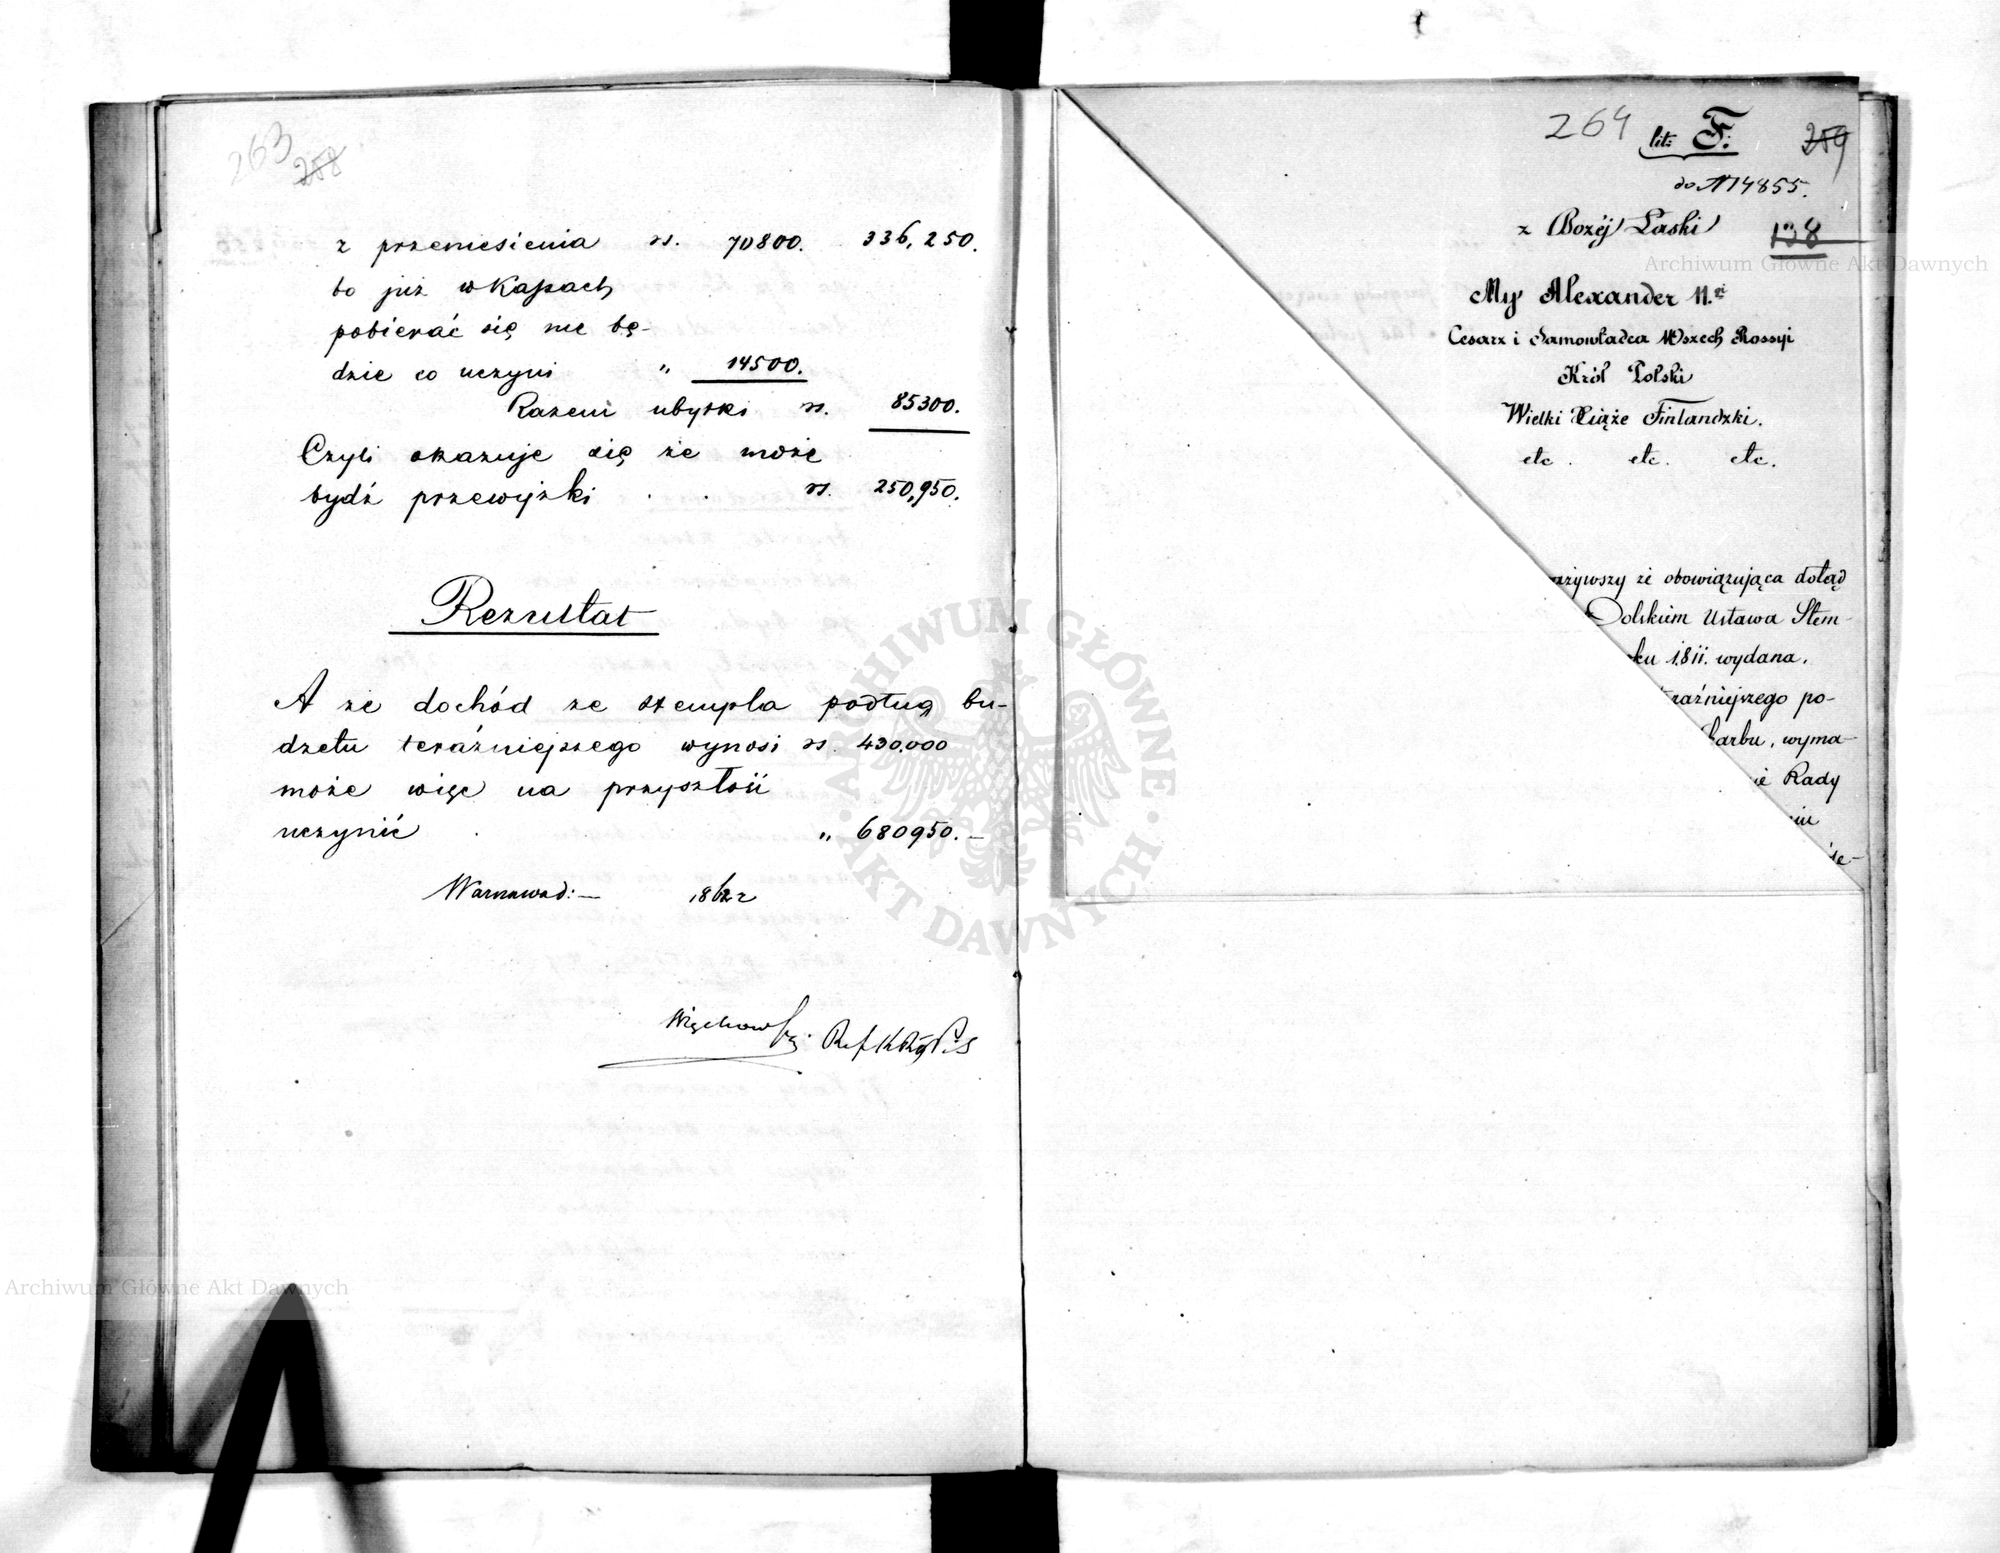 263
258
z przeniesienia rs. 70800. 336,250.
bo już w Kassach
pobierać się nie bę-
dzie co uczyni " 14500.
Razem ubytki rs. 85300.
Czyli okazuje się że może
bydź przewyżki . . rs. 250,950.
Rezultat
A że dochód ze stempla podług bu-
dżetu teraźniejszego wynosi rs. 430.000
może więc na przyszłość
uczynić . " 680950.—
Warszawa d: — 1862 r
264
lit: F:
259
do N 14855.
z Bożéj Łaski
138
My Alexander II.gi
Cesarz i Samowładca Wszech Rossyi
Król Polski
Wielki Xiąże Finlandzki.
etc. etc. etc.
ażywszy że obowiązująca dotąd
Polskiem Ustawa Stem-
ku 1811. wydana,
raźniejszego po-
karbu, wyma-
ie Rady
niu
ie-
ARCHIWUM GŁÓWNE
AKT DAWNYCH
Archiwum Główne Akt Dawnych
Archiwum Główne Akt Dawnych